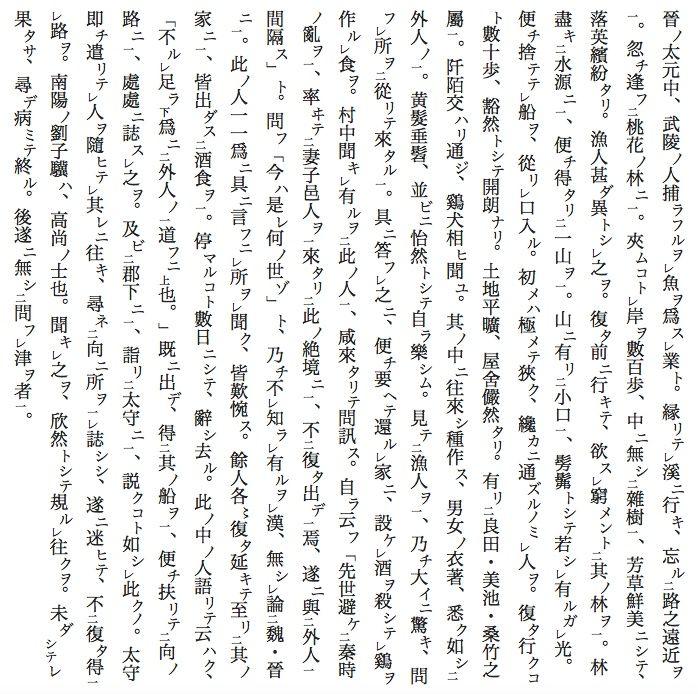 晉ノ太元中、武陵ノ人捕ラフルヲレ魚ヲ爲スレ業ト。縁リテレ溪ニ行キ、忘ル二路之遠近ヲ
一。忽チ逢フ二桃花ノ林ニ一。夾ムコトレ岸ヲ數百步、中ニ無シ二雜樹一、芳草鮮美ニシテ、
落英繽紛タリ。漁人甚ダ異トシレ之ヲ。復タ前ニ行キテ、欲スレ窮メント二其ノ林ヲ一。林
盡キ二水源ニ一、便チ得タリ二一山ヲ一。山ニ有リ二小口一、髣髴トシテ若シレ有ルガレ光。
便チ捨テテレ船ヲ、從リレ口入ル。初メハ極メテ狹ク、纔カニ通ズルノミレ人ヲ。復タ行クコ
ト數十步、豁然トシテ開朗ナリ。土地平曠、屋舍儼然タリ。有リ二良田・美池・桑竹之
屬一。阡陌交ハリ通ジ、鷄犬相ヒ聞ユ。其ノ中ニ往來シ種作ス、男女ノ衣著、悉ク如シ二
外人ノ一。黃髮垂髫、並ビニ怡然トシテ自ラ樂シム。見テ二漁人ヲ一、乃チ大イニ驚キ、問
フレ所ヲ二從リテ來タル一。具ニ答フレ之ニ、便チ要ヘテ還ルレ家ニ、設ケレ酒ヲ殺シテレ鷄ヲ
作ルレ食ヲ。村中聞キレ有ルヲ二此ノ人一、咸來タリテ問訊ス。自ラ云フ「先世避ケ二秦時
ノ亂ヲ一、率ヰテ二妻子邑人ヲ一來タリ二此ノ絕境ニ一、不二復タ出デ一焉、遂ニ與二外人一
間隔ス」ト。問フ「今ハ是レ何ノ世ゾ」ト、乃チ不レ知ラレ有ルヲレ漢、無シレ論二魏・晉
ニ一。此ノ人一一爲ニ具ニ言フ二レ所ヲレ聞ク、皆歎惋ス。餘人各〻復タ延キテ至リ二其ノ
家ニ一、皆出ダス二酒食ヲ一。停マルコト數日ニシテ、辭シ去ル。此ノ中ノ人語リテ云ハク、
「不ルレ足ラ下爲ニ二外人ノ一道フニ上也。」既ニ出デ、得二其ノ船ヲ一、便チ扶リテ二向ノ
路ニ一、處處ニ誌スレ之ヲ。及ビ二郡下ニ一、詣リ二太守ニ一、説クコト如シレ此クノ。太守
即チ遣リテレ人ヲ隨ヒテ其レニ往キ、尋ネ二向ニ所ヲ一レ誌シシ、遂ニ迷ヒテ、不二復タ得一
レ路ヲ。南陽ノ劉子驥ハ、高尚ノ士也。聞キレ之ヲ、欣然トシテ規ルレ往クヲ。未ダシテレ
果タサ、尋デ病ミテ終ル。後遂ニ無シ二問フレ津ヲ者一。